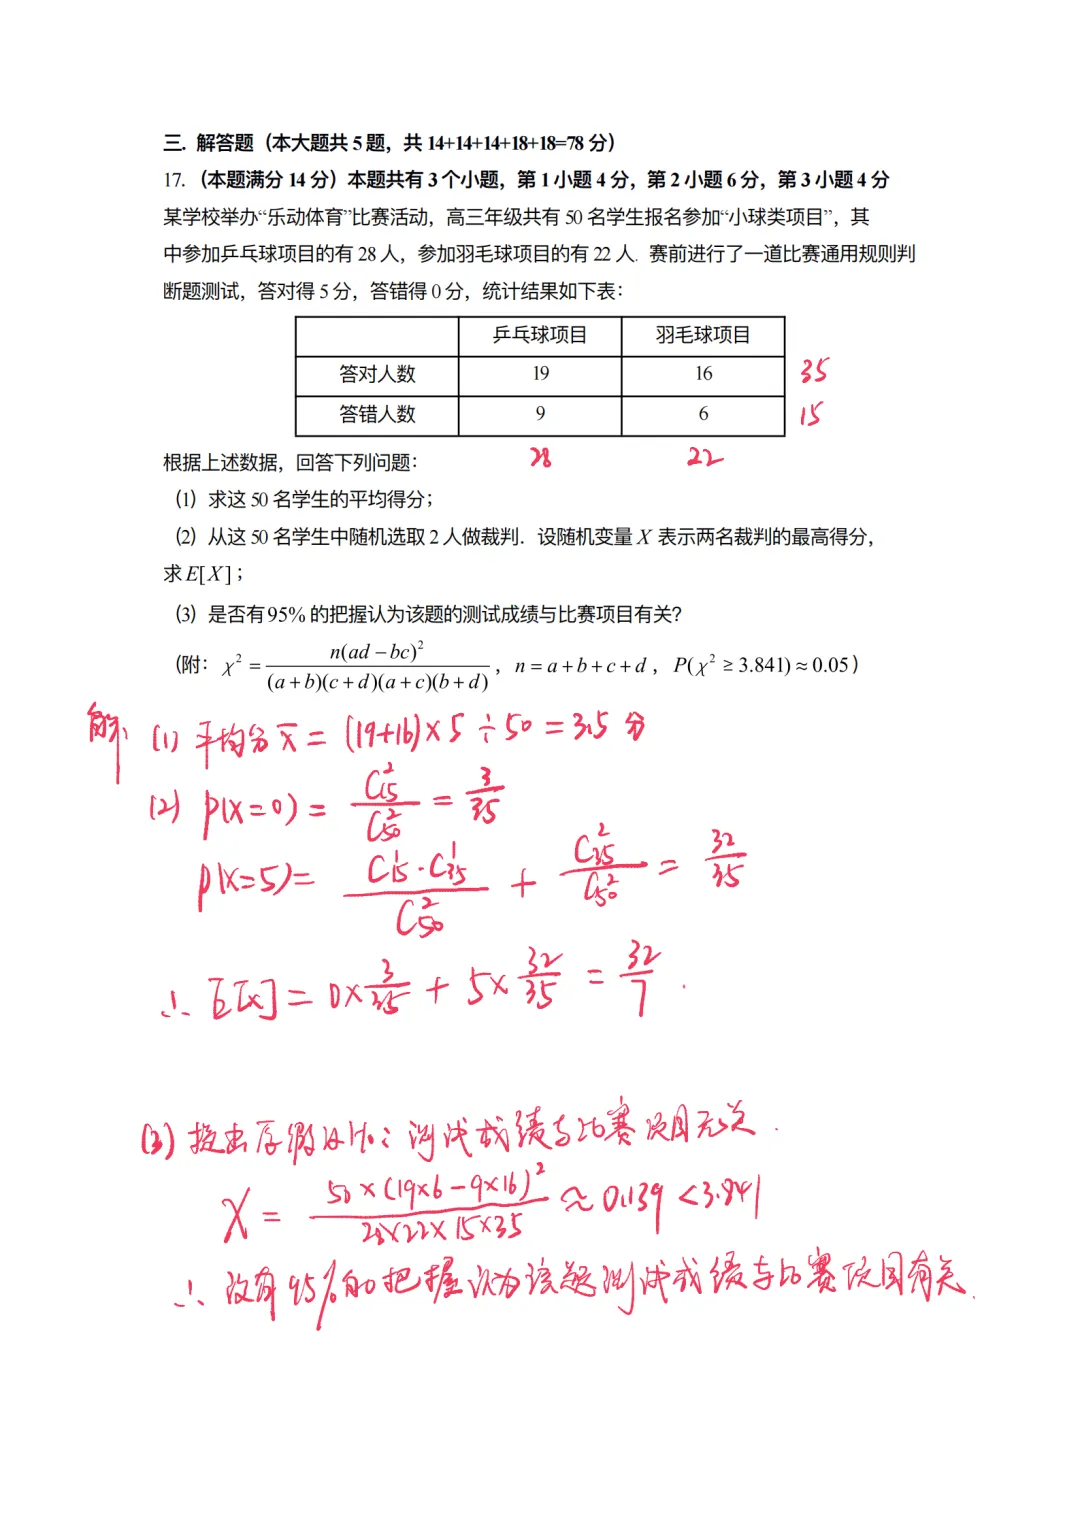 三. 解答题（本大题共5题，共14+14+14+18+18=78分）
17.（本题满分14分）本题共有3个小题，第1小题4分，第2小题6分，第3小题4分
某学校举办“乐动体育”比赛活动，高三年级共有50名学生报名参加“小球类项目”，其
中参加乒乓球项目的有28人，参加羽毛球项目的有22人. 赛前进行了一道比赛通用规则判
断题测试，答对得5分，答错得0分，统计结果如下表：
乒乓球项目 羽毛球项目
答对人数 19 16 35
答错人数 9 6 15
28 22
根据上述数据，回答下列问题：
（1）求这50名学生的平均得分；
（2）从这50名学生中随机选取2人做裁判. 设随机变量X表示两名裁判的最高得分，
求E[X]；
（3）是否有95%的把握认为该题的测试成绩与比赛项目有关？
（附：χ² = n(ad−bc)² / (a+b)(c+d)(a+c)(b+d)，n=a+b+c+d，P(χ²≥3.841)≈0.05）
解：(1) 平均分 x̄ = (19+16)×5÷50 = 3.5 分
(2) P(X=0) = C₁₅² / C₅₀² = 3/35
P(X=5) = C₁₅¹·C₃₅¹ / C₅₀² + C₃₅² / C₅₀² = 32/35
∴ E[X] = 0×3/35 + 5×32/35 = 32/7.
(3) 提出原假设H₀：测试成绩与比赛项目无关.
χ = 50×(19×6−9×16)² / 28×22×15×35 ≈ 0.139 < 3.841
∴ 没有95%的把握认为该题测试成绩与比赛项目有关.